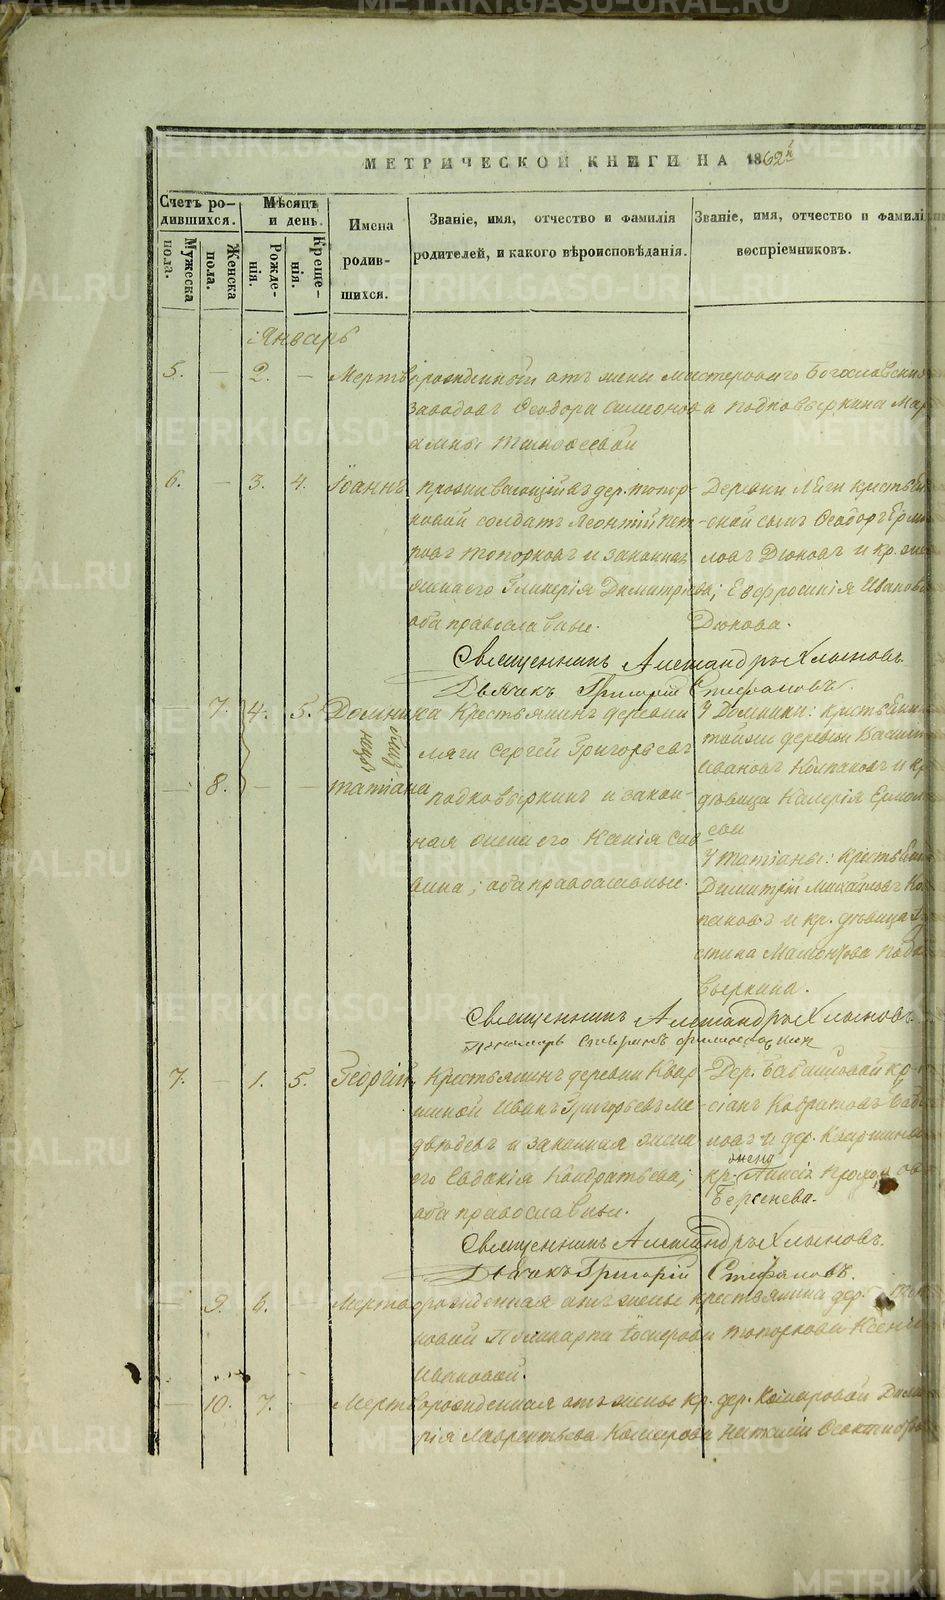 МЕТРИЧЕСКОЙ КНИГИ НА 1862й
Счетъ родившихся.
Мужеска пола.
Женска пола.
Мѣсяцъ и день.
Рожденія.
Крещенія.
Имена родившихся.
Званіе, имя, отчество и фамилія
родителей, и какого вѣроисповѣданія.
Званіе, имя, отчество и фамилі
воспріемниковъ.
Январь
5. — 2. — Мертворожденный отъ жены мастероваго Богословских
заводовъ Ѳеодора Симеонова Подковыркина Мар
Тимофеевой
6. — 3. 4. Іоаннъ
проживающій въ дер. Топор-
ковой солдатъ Леонтій Пет-
ровъ Топорковъ и законная
жена его Гликерія Димитріева;
оба православные.
Деревни Ляги крестьян-
ской сынъ Ѳеодоръ Ермо
ловъ Дюковъ и кр. жена
Евфросинія Иванова
Дюкова.
Священникъ Александръ Хлыновъ.
Дьячекъ Григорій Стефановъ.
— 7. 4. 5. Домника
— 8. — — Татіана
Крестьянинъ деревни
Ляги Сергей Григорьевъ
Подковыркинъ и закон-
ная жена его Ксенія Сав
вина; оба православные.
У Домники: крестьянинъ
тойже деревни Василій
Ивановъ Колпаковъ и кр.
дѣвица Валерія Ермола
евы
У Татіаны: крестьянинъ
Димитрій Михайловъ Ко
паковъ и кр. дѣвица
Мамонтова Подко
выркина.
Священникъ Александръ Хлыновъ
Пономарь
7. — 1. 5. Георгій
Крестьянинъ деревниКвар
шиной Иванъ Григорьевъ Ме-
двѣдевъ и законная жена
его Евдокія Кондратьева;
оба православные.
Дер. Бабиновой кр-
ловъ и дер. Кваршиной
кр. жена
Берсенева.
Священникъ Александръ Хлыновъ.
Дьячекъ Григорій Стефановъ.
— 9. 6. — Мертворожденная отъ жены крестьянина дер. Топор
ковой Поликарпа Топоркова Ксеніи
Ивановой.
— 10. 7. — Мертворожденная отъ жены кр. дер. Комаровой Дими
трія Лаврентьева Комарова
METRIKI.GASO-URAL.RU